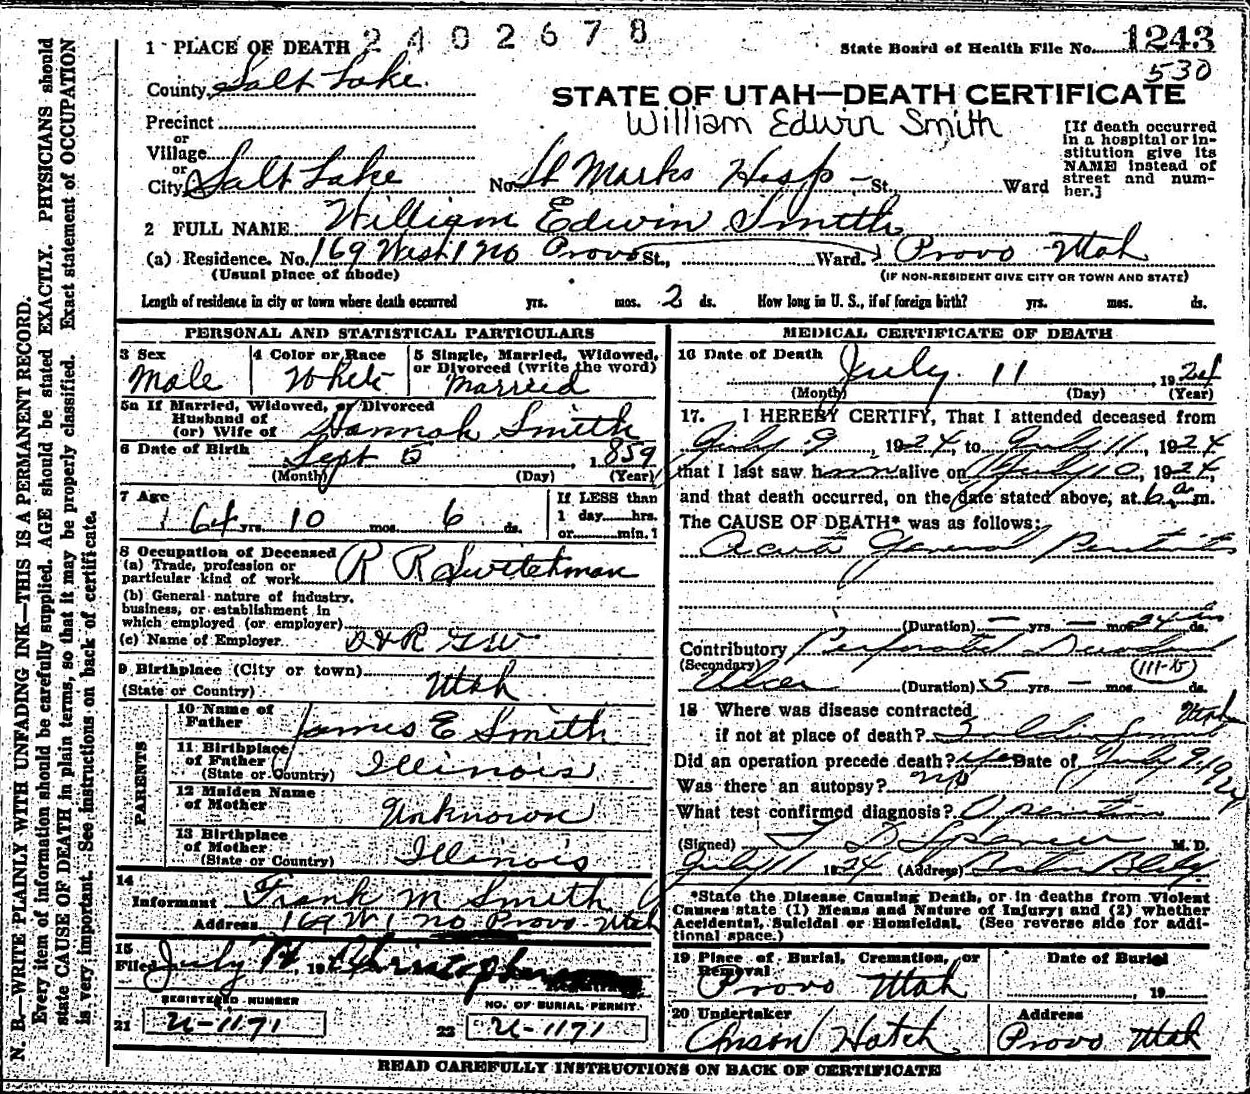 N. B.—WRITE PLAINLY WITH UNFADING INK—THIS IS A PERMANENT RECORD.
Every item of information should be carefully supplied. AGE should be stated EXACTLY. PHYSICIANS should
state CAUSE OF DEATH in plain terms, so that it may be properly classified. Exact statement of OCCUPATION
is very important. See instructions on back of certificate.
2402678
1 PLACE OF DEATH
State Board of Health File No. 1243
530
County Salt Lake
STATE OF UTAH—DEATH CERTIFICATE
William Edwin Smith
Precinct
or
Village
or
City Salt Lake No. St Marks Hosp - St. Ward
[If death occurred
in a hospital or in-
stitution give its
NAME instead of
street and num-
ber.]
2 FULL NAME William Edwin Smith
(a) Residence. No. 169 West 1 No Provo St., Ward. Provo Utah
(Usual place of abode) (IF NON-RESIDENT GIVE CITY OR TOWN AND STATE)
Length of residence in city or town where death occurred yrs. mos. 2 ds. How long in U. S., if of foreign birth? yrs. mos. ds.
PERSONAL AND STATISTICAL PARTICULARS
3 Sex
Male
4 Color or Race
White
5 Single, Married, Widowed,
or Divorced (write the word)
Married
5a If Married, Widowed, or Divorced
Husband of
(or) Wife of Hannah Smith
6 Date of Birth Sept 5, 1859
(Month) (Day) (Year)
7 Age
64 yrs. 10 mos. 6 ds.
If LESS than
1 day hrs.
or min. 1
8 Occupation of Deceased
(a) Trade, profession or
particular kind of work R R Switchman
(b) General nature of industry,
business, or establishment in
which employed (or employer)
(c) Name of Employer D & R G W
9 Birthplace (City or town)
(State or Country) Utah
PARENTS
10 Name of
Father James E Smith
11 Birthplace
of Father
(State or Country) Illinois
12 Maiden Name
of Mother Unknown
13 Birthplace
of Mother
(State or Country) Illinois
14
Informant Frank M Smith
Address 169 W 1 no Provo Utah
15
Filed July 19
REGISTERED NUMBER
21 U-1171
NO. OF BURIAL PERMIT
22 U-1171
MEDICAL CERTIFICATE OF DEATH
16 Date of Death July 11, 1924
(Month) (Day) (Year)
17. I HEREBY CERTIFY, That I attended deceased from
July 9, 1924, to July 11, 1924
that I last saw him alive on July 10, 1924,
and that death occurred, on the date stated above, at 6 a m.
The CAUSE OF DEATH* was as follows:
Acute General Peritonitis
(Duration) - yrs. - mos. ds.
Contributory Perforated Duodenal
(Secondary) (111-b)
Ulcer (Duration) 5 yrs. - mos. ds.
18 Where was disease contracted
if not at place of death? Soldier Summit Utah
Did an operation precede death? yes Date of July 9, 1924
Was there an autopsy? no
What test confirmed diagnosis? Operation
(Signed) Spencer M. D.
July 11 1924 (Address) Boston Bldg
*State the Disease Causing Death, or in deaths from Violent
Causes state (1) Means and Nature of Injury; and (2) whether
Accidental, Suicidal or Homicidal. (See reverse side for addi-
tional space.)
19 Place of Burial, Cremation, or
Removal
Provo Utah
Date of Burial
, 19
20 Undertaker
Anson Hatch
Address
Provo Utah
READ CAREFULLY INSTRUCTIONS ON BACK OF CERTIFICATE